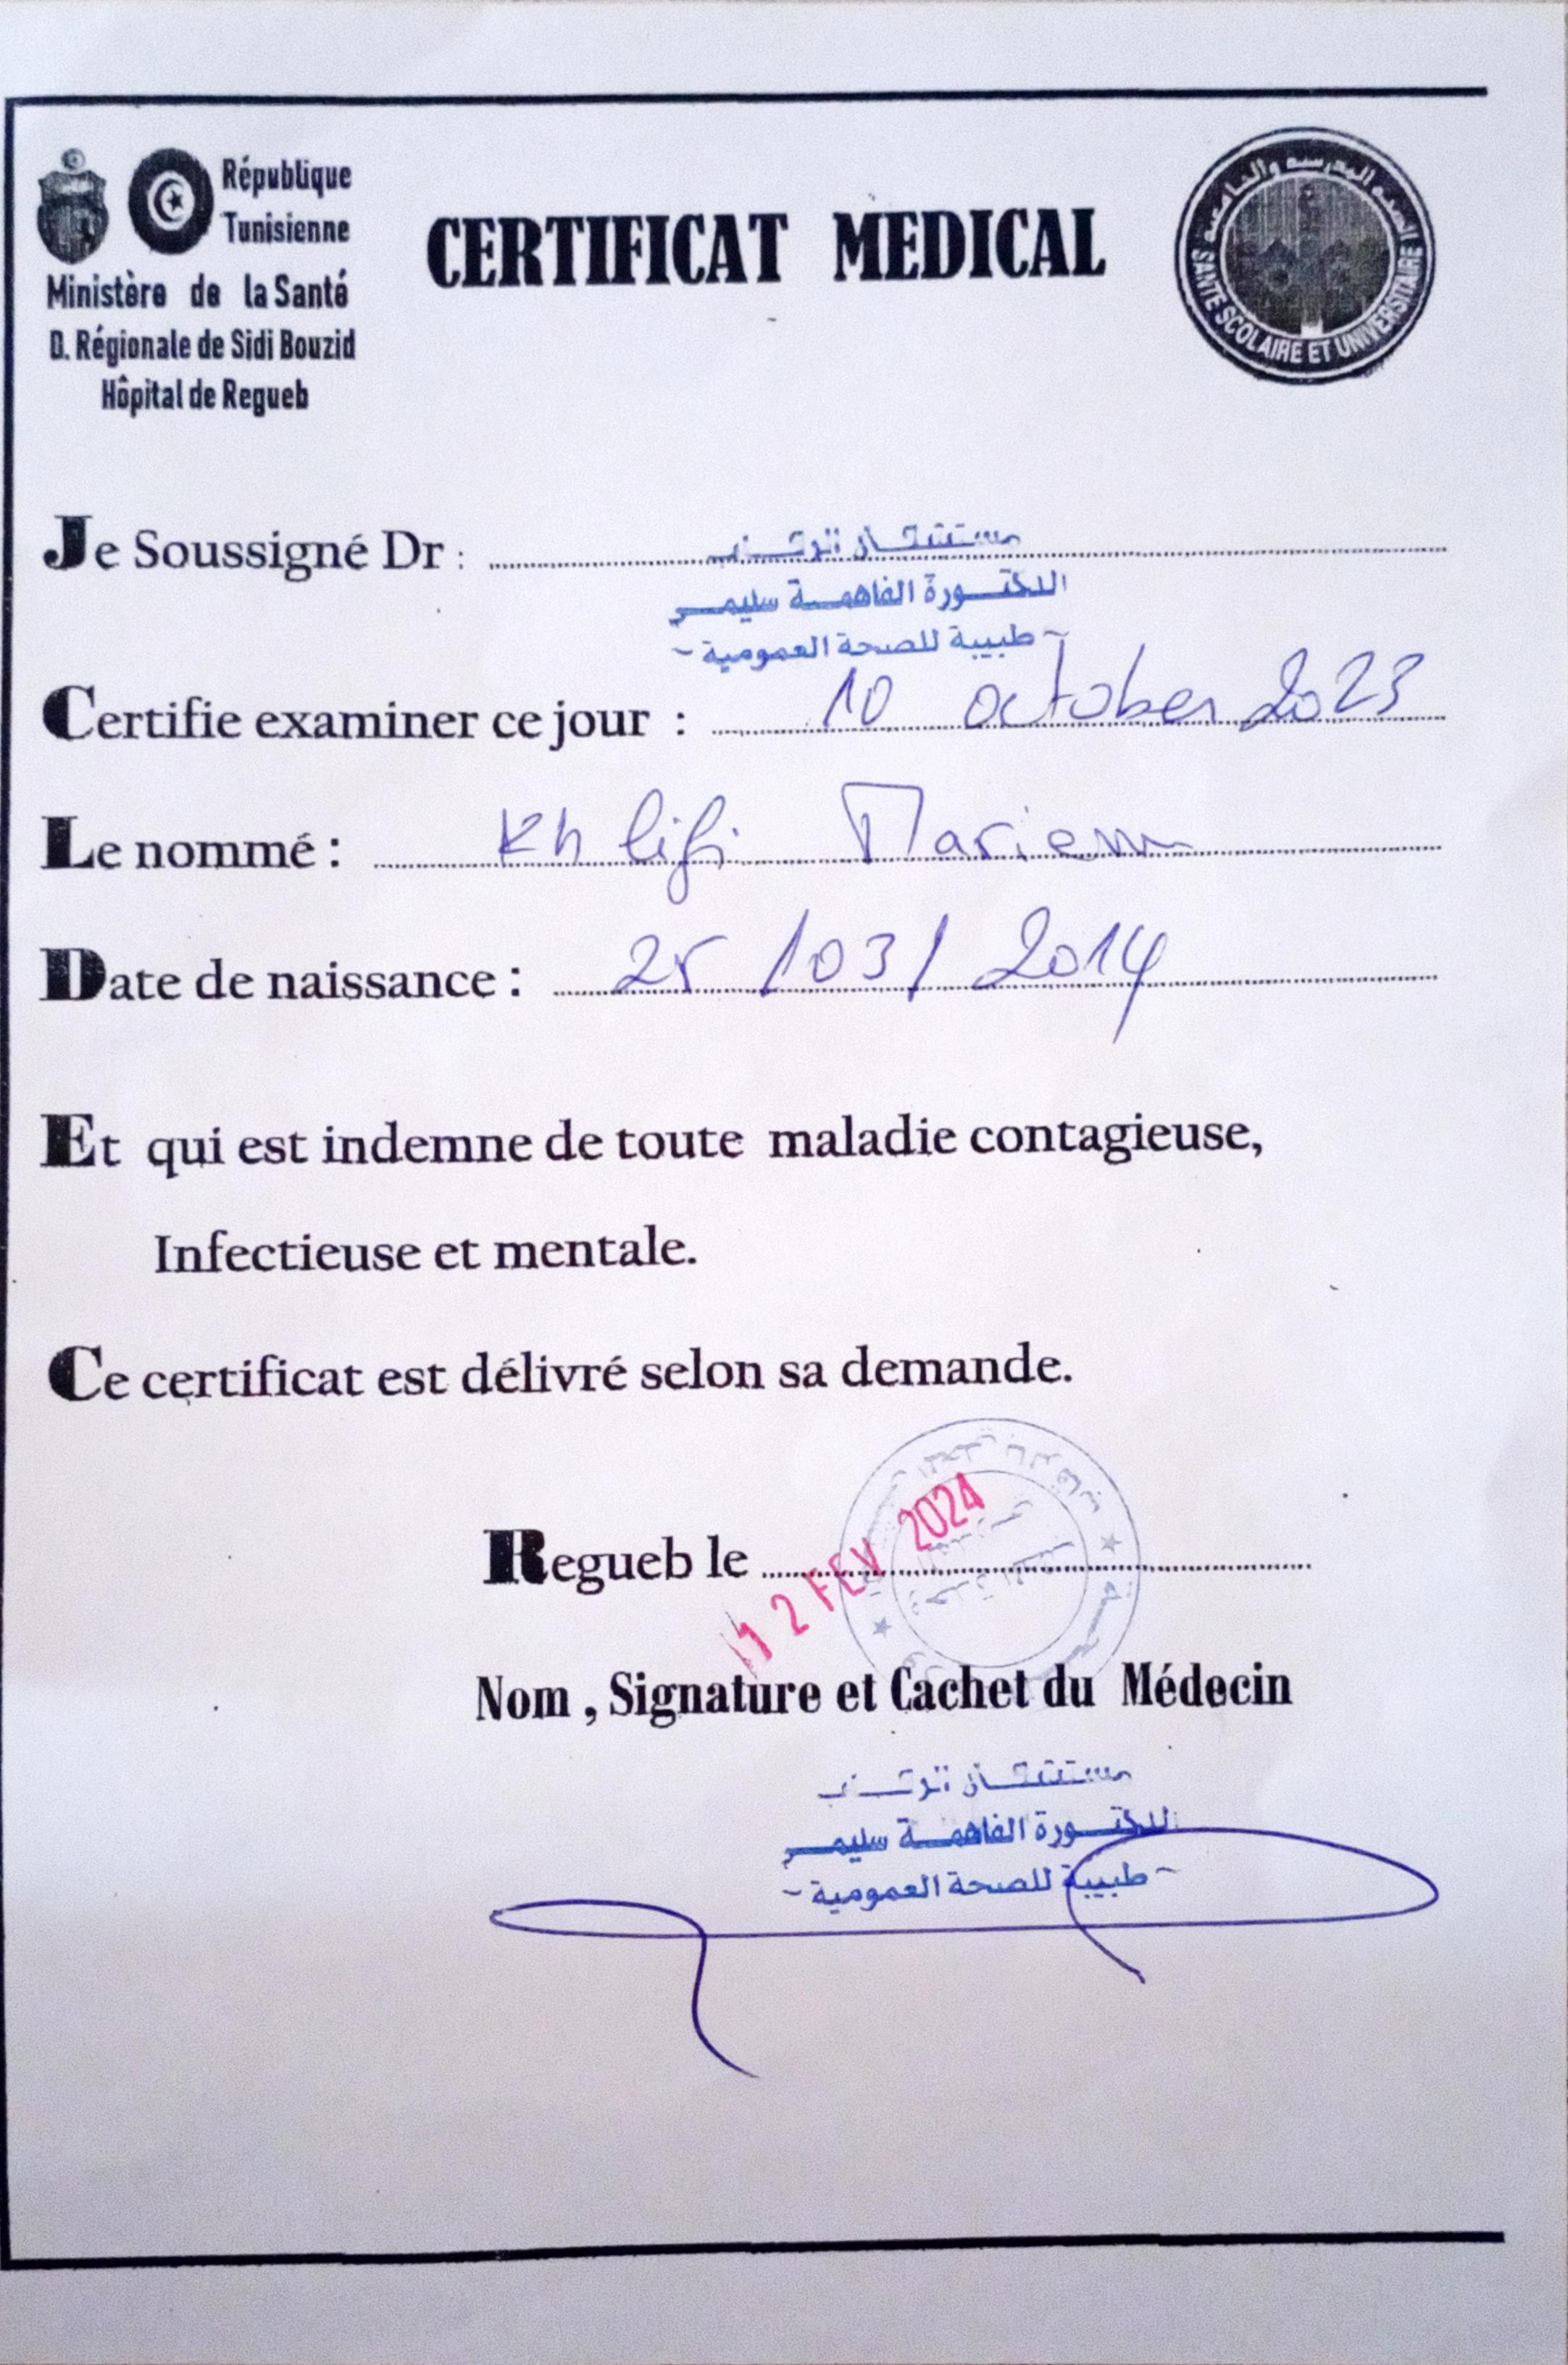 République
Tunisienne
Ministère de la Santé
D. Régionale de Sidi Bouzid
Hôpital de Regueb
CERTIFICAT MEDICAL
SANTE SCOLAIRE ET UNIVERSITAIRE
Je Soussigné Dr :
الدكتورة الفاهمة سليمي
~ طبيبة للصحة العمومية ~
Certifie examiner ce jour : 10 october 2023
Le nommé : Khlifi Mariem
Date de naissance : 25 / 03 / 2014
Et qui est indemne de toute maladie contagieuse,
Infectieuse et mentale.
Ce certificat est délivré selon sa demande.
Regueb le 12 FEV 2024
Nom , Signature et Cachet du Médecin
الدكتورة الفاهمة سليمي
~ طبيبة للصحة العمومية ~